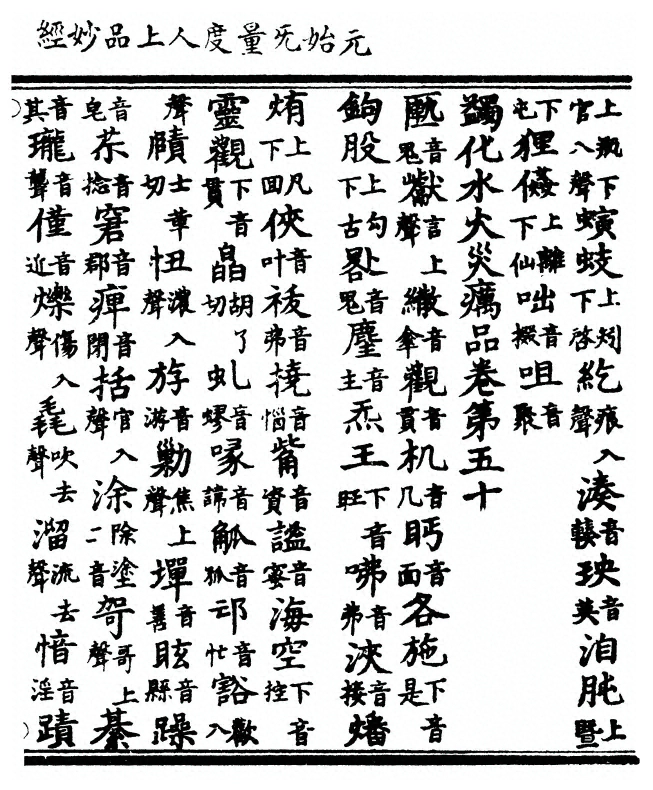 元始旡量度人上品妙經
上瓶下官入聲蚑上刿下啓紇痕入聲湊音輳瑛音英洎肫上暨
下屯狸上離下仙咄音掇咀音聚
蠲化水火災癘品卷第五十
匭音鬼獻言上聲繖音傘觀音貫机音几眄音面各施下音是
鉤股上勾下古晷上音鬼麈音主炁王下音旺咈音弗浹音接燔
上凡下回俠音叶祓音弗撓音惱觜音資謐音蜜海空下音控
靈觀下音貫皛胡了切虬音蟉喙音諱觚音孤邙音忙豁歡入
聲賾士革切忸濃入聲斿音游勦焦上聲墠音善眩音縣躁
音皂苶音捻窘音郡痺音閉括官入聲涂除塗二音哿哥上聲綦
音其瓏音聾僅音近爍傷入聲毳吹去聲溜流去聲愔音淫蹟